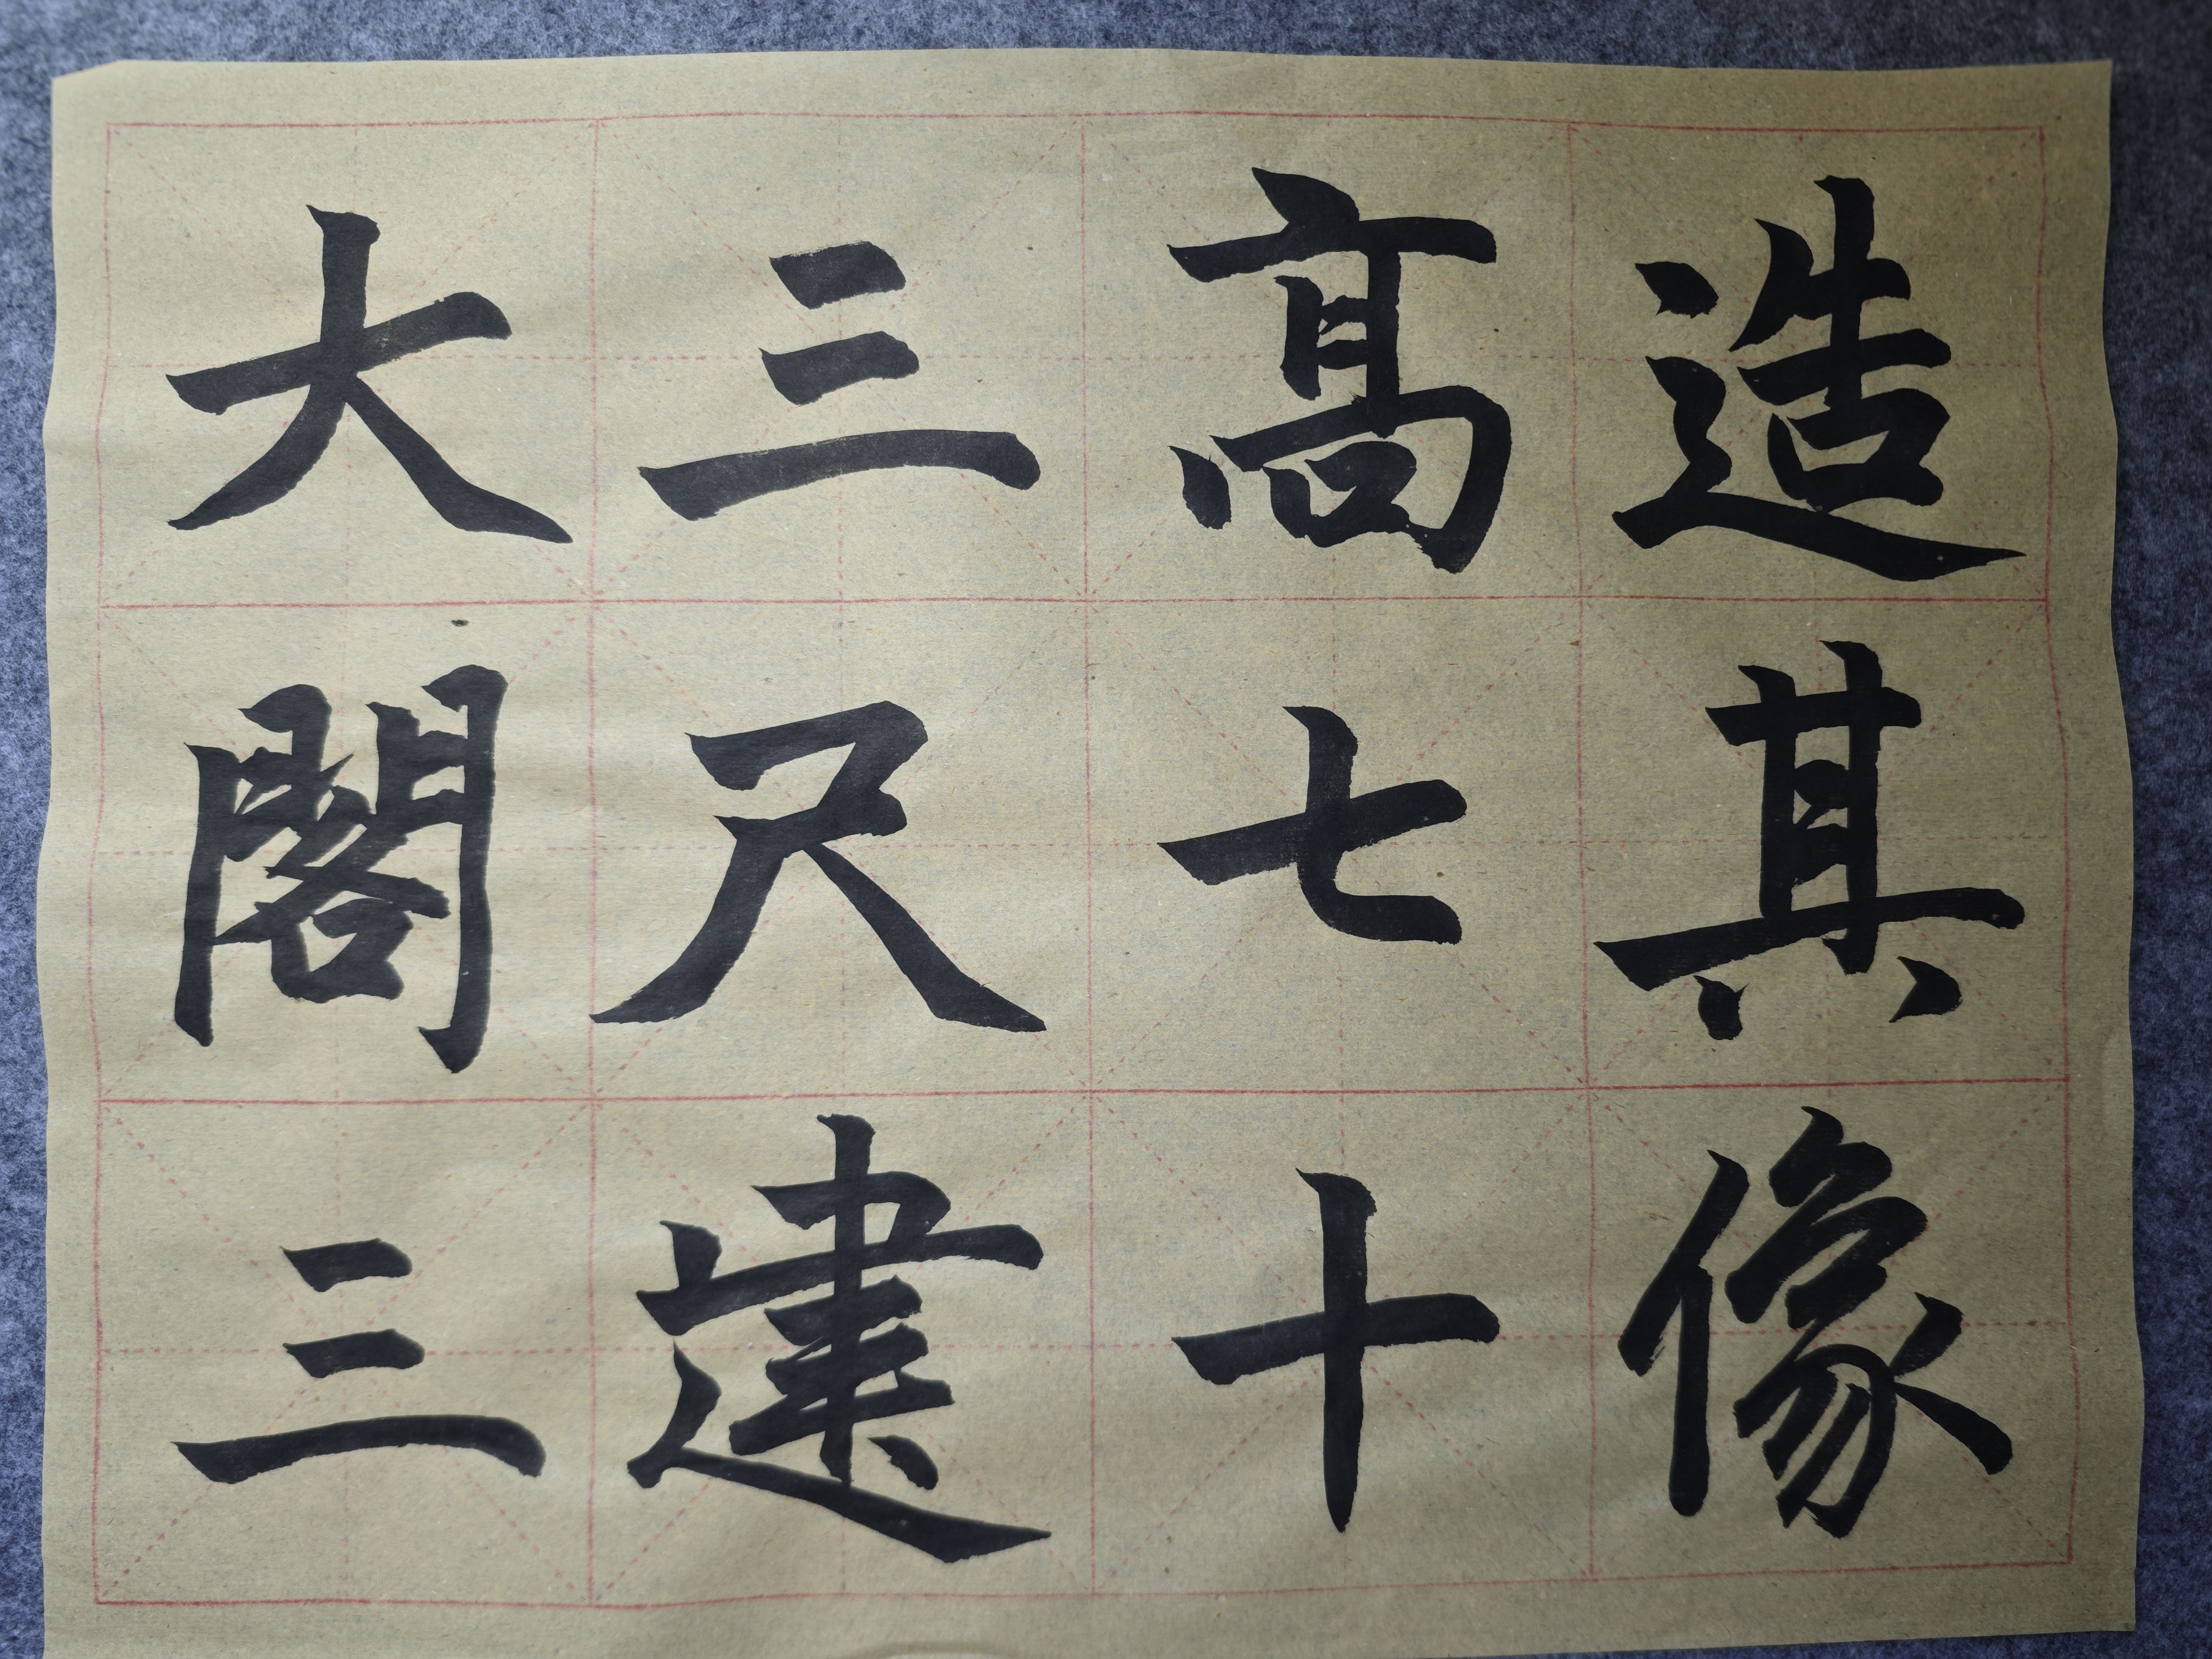 造其像
高七十
三尺建
大閣三